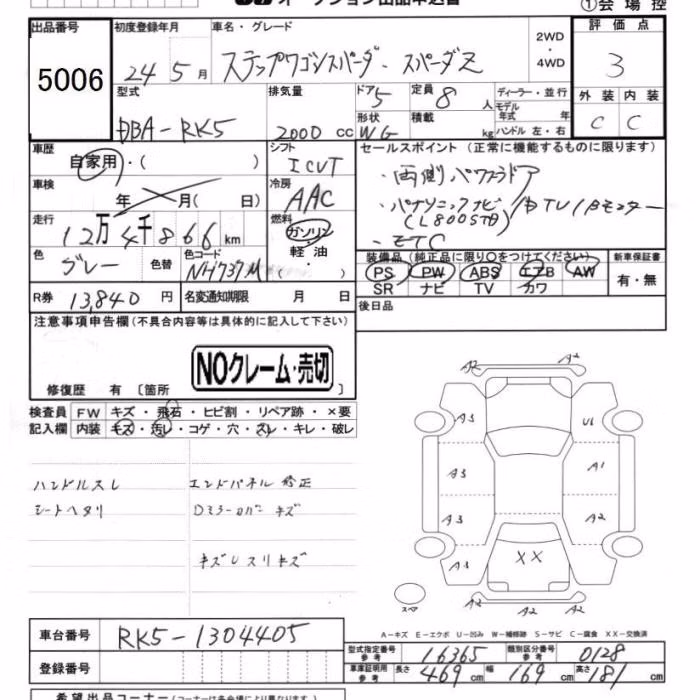 オークション出品申込書
①会場控
出品番号 5006
初度登録年月 24 5月
車名・グレード ステップワゴンスパーダ・スパーダZ
2WD・4WD
評価点 3
型式 DBA-RK5
排気量 2000 cc
ドア 5
形状 WG
定員 8人
積載 kg
ディーラー・並行
モデル年式 年
ハンドル 左・右
外装 C 内装 C
車歴 自家用・( )
シフト ICVT
セールスポイント (正常に機能するものに限ります)
車検 年 月( 日)
冷房 AAC
・両側パワスラドア
走行 12万4千866km
燃料 ガソリン・軽油( )
・パナソニックナビ/
(L800STB)
・ETC
色 グレー 色替
色コード NH737M
装備品 (純正品に限り○をつけてください)
PS PW ABS エアB AW
SR ナビ TV カワ
新車保証書 有・無
R券 13,840円
名変通知期限 月 日
後日品
注意事項申告欄(不具合内容等は具体的に記入して下さい)
NOクレーム・売切
修復歴 有 [箇所 ]
検査員記入欄
FW キズ・飛石・ヒビ割・リペア跡・×要
内装 キズ・汚レ・コゲ・穴・スレ・キレ・破レ
ハンドルスレ エンドパネル修正
シートヘタリ Dミラーカバーキズ
キズレスリキズ
A2 A2
A3 U1
A3 A1
A3 A2
A3 XX
A2 A2 A2
スペア
A-キズ E-エクボ U-凹み W-補修跡 S-サビ C-腐食 XX-交換済
車台番号 RK5-1304405
登録番号
型式指定番号 参考 16365
類別区分番号 参考 0128
車庫証明用 参考 長さ 469cm 幅 169cm 高さ 181cm
希望出品コーナー(コーナーは各会場により